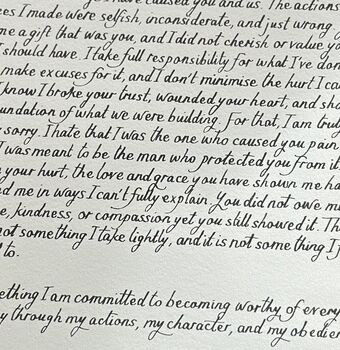 I have caused you and us. The actions
es I made were selfish, inconsiderate, and just wrong
me a gift that was you, and I did not cherish or value yo
I should have. I take full responsibility for what I've don
make excuses for it, and I don't minimise the hurt I cau
I know I broke your trust, wounded your heart, and sha
undation of what we were building. For that, I am trul
sorry. I hate that I was the one who caused you pain,
I was meant to be the man who protected you from it.
your hurt, the love and grace you have shown me ha
ed me in ways I can't fully explain. You did not owe m
e, kindness, or compassion yet you still showed it. Th
not something I take lightly, and it is not something I f
to.
ething I am committed to becoming worthy of every
y through my actions, my character, and my obedien